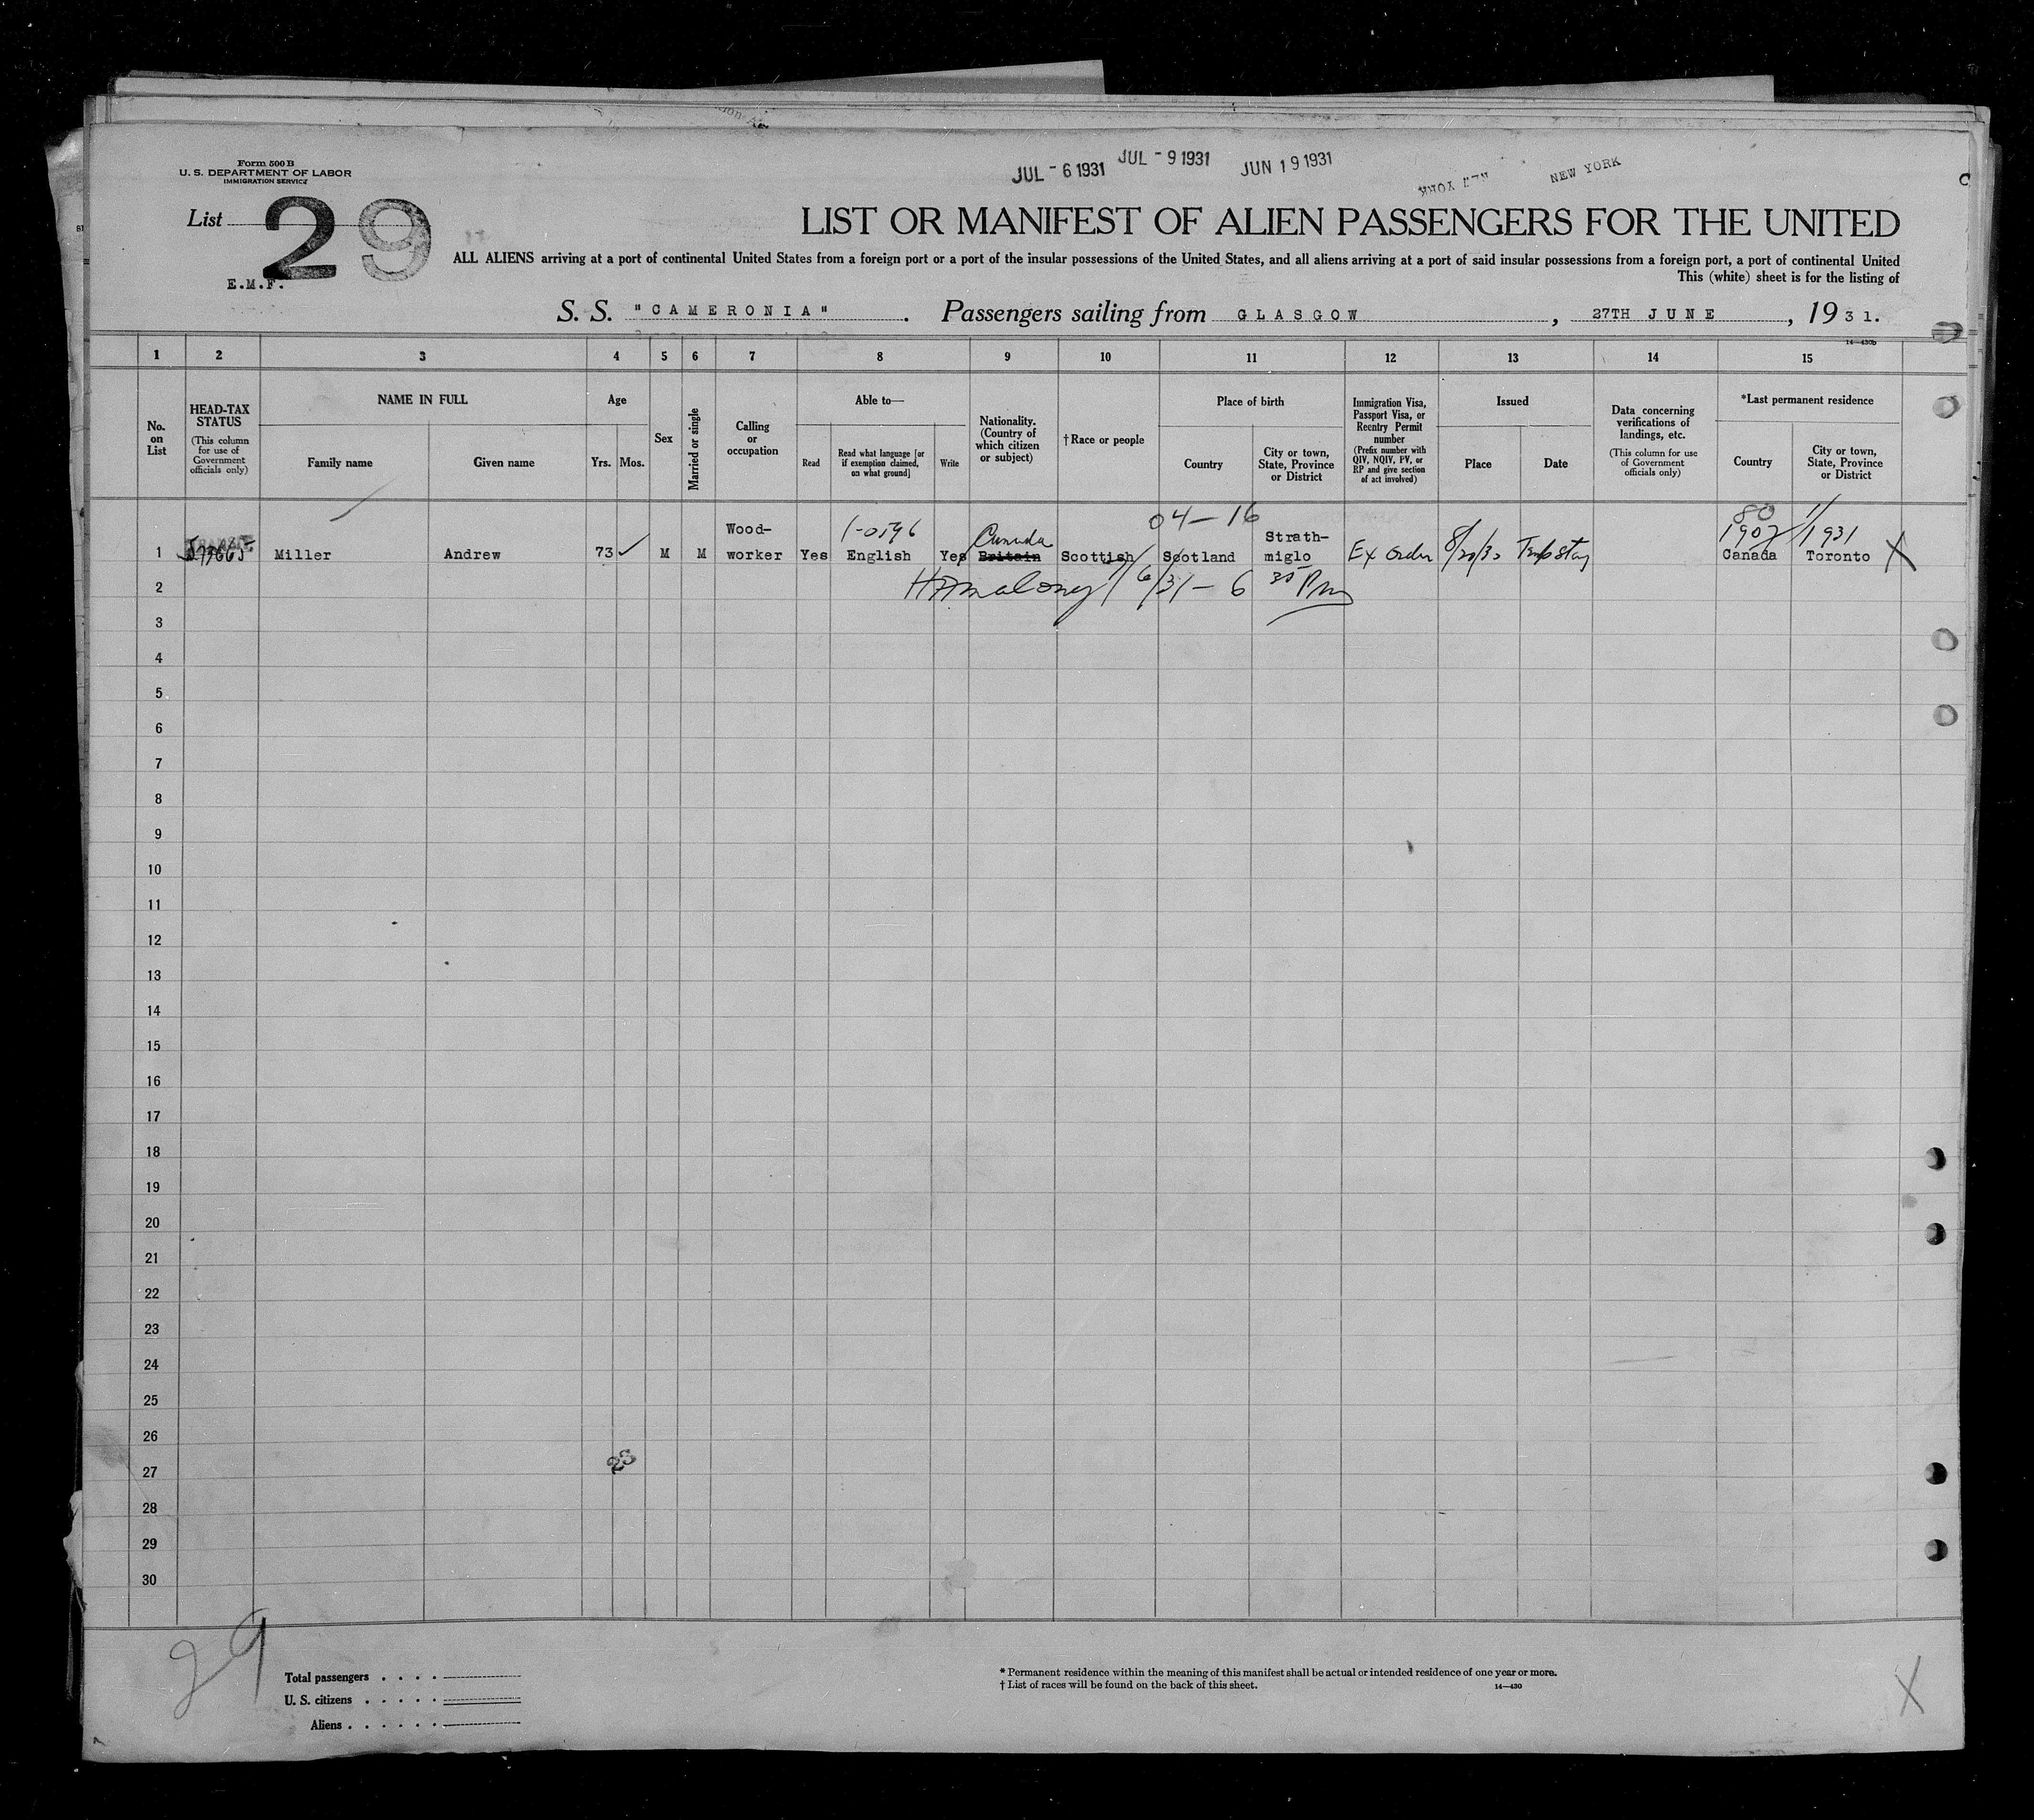 JUL - 6 1931 JUL - 9 1931 JUN 19 1931 NEW YORK
Form 500 B
U. S. DEPARTMENT OF LABOR
IMMIGRATION SERVICE
List 29
E.M.F.
LIST OR MANIFEST OF ALIEN PASSENGERS FOR THE UNITED
ALL ALIENS arriving at a port of continental United States from a foreign port or a port of the insular possessions of the United States, and all aliens arriving at a port of said insular possessions from a foreign port, a port of continental United
This (white) sheet is for the listing of
S. S. "CAMERONIA". Passengers sailing from GLASGOW, 27TH JUNE, 1931.
14—430b
1 2 3 4 5 6 7 8 9 10 11 12 13 14 15
No. on List
HEAD-TAX STATUS
(This column for use of Government officials only)
NAME IN FULL
Family name
Given name
Age
Yrs.
Mos.
Sex
Married or single
Calling or occupation
Able to—
Read
Read what language [or if exemption claimed, on what ground]
Write
Nationality. (Country of which citizen or subject)
†Race or people
Place of birth
Country
City or town, State, Province or District
Immigration Visa, Passport Visa, or Reentry Permit number
(Prefix number with QIV, NQIV, PV, or RP and give section of act involved)
Issued
Place
Date
Data concerning verifications of landings, etc.
(This column for use of Government officials only)
*Last permanent residence
Country
City or town, State, Province or District
04-16 80
Wood- Canada Strath- 1907 1931
1 Miller Andrew 73 M M worker Yes English Yes Britain Scottish Scotland miglo Ex order 8/20/30 Canada Toronto X
2 6/31 - 6 30 Pm
3
4
5
6
7
8
9
10
11
12
13
14
15
16
17
18
19
20
21
22
23
24
25
26
27
28
29
30
23
29
Total passengers . . . .
U. S. citizens . . . . .
Aliens . . . . . .
* Permanent residence within the meaning of this manifest shall be actual or intended residence of one year or more.
† List of races will be found on the back of this sheet.
14—430
X